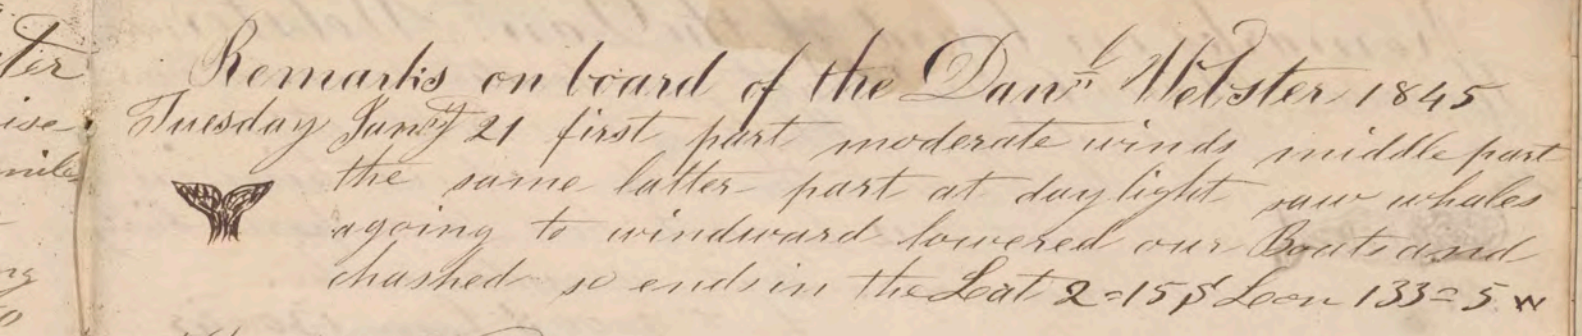 Remarks on board of the Dan'l Webster 1845
Tuesday Jany 21 first part moderate winds middle part
the same latter part at daylight saw whales
agoing to windward lowered our Boats and
chashed so ends in the Lat 2=15 S Lon 133=5 W
ter
ise
mile
ng